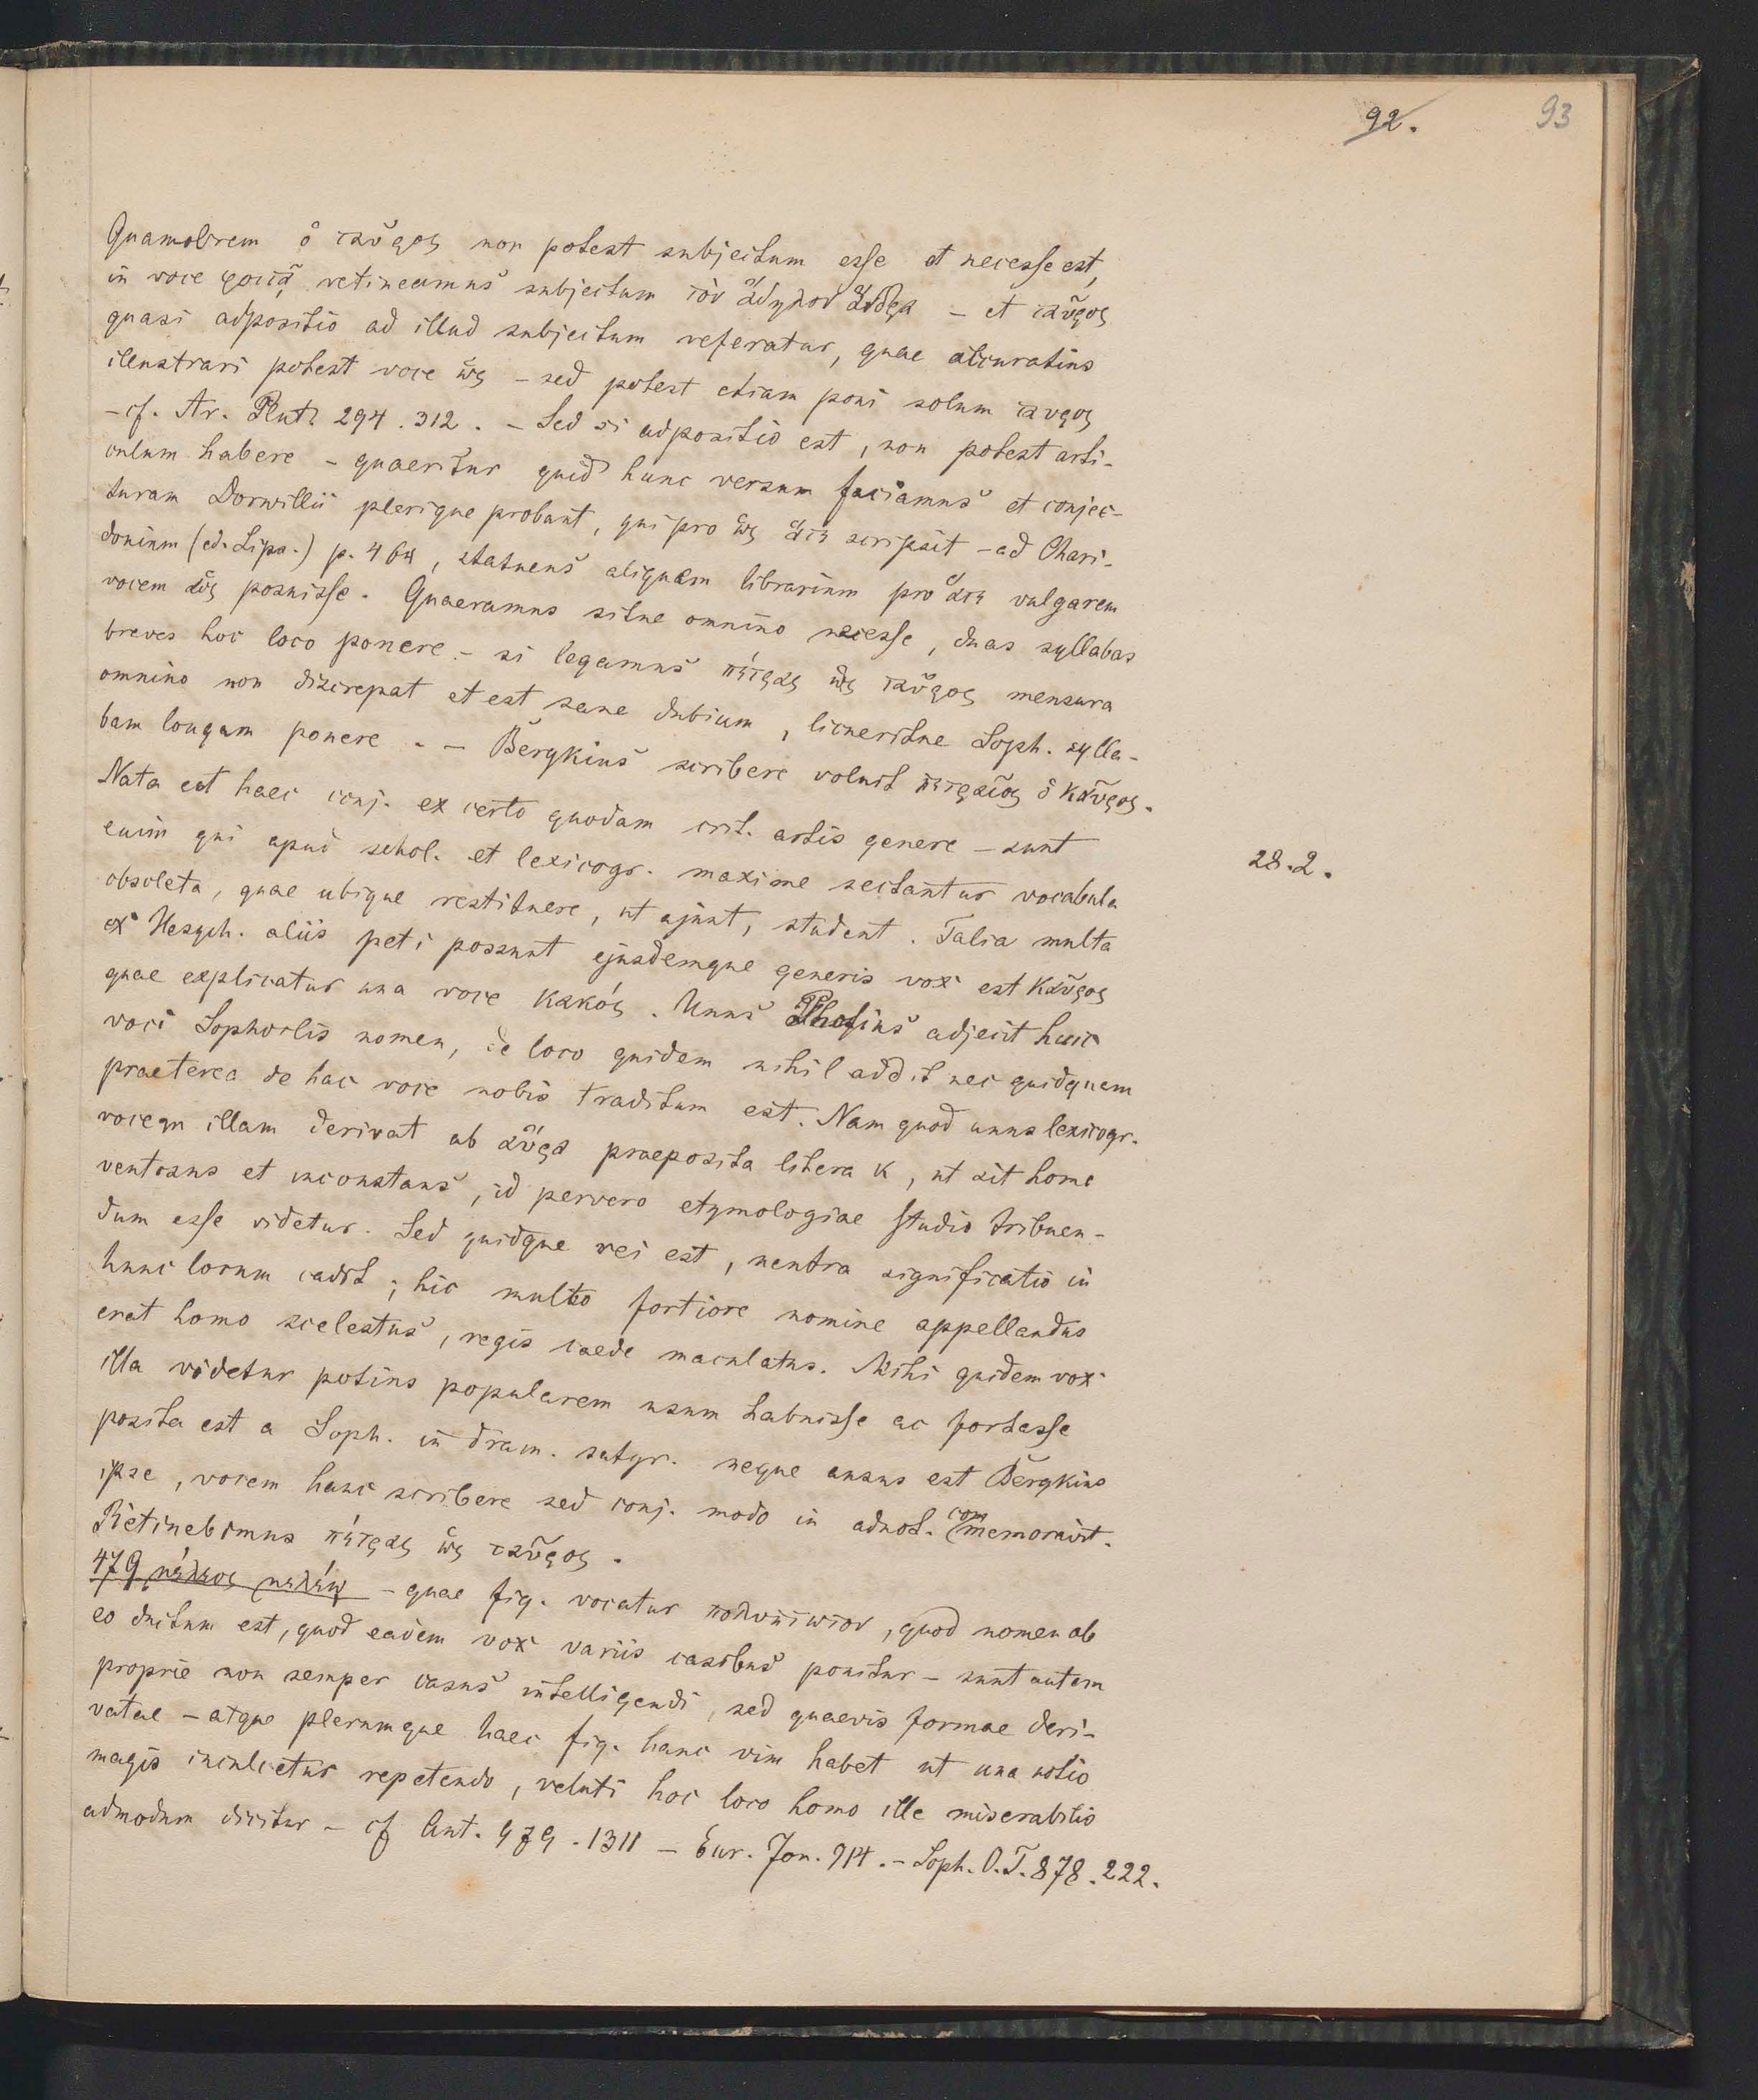 92.
93
Quamobrem ὁ ταῦρος non potest subjectum esse et necesse est,
in voce φοιτᾷ retineamus subjectum τὸν ἄδηλον ἄνδρα – et ταῦρος
quasi adpositio ad illud subjectum referatur, quae accuratius
illustrari potest voce ὡς – sed potest etiam poni solum ταυρος
– cf. Ar. Plut. 294. 312. – Sed si adpositio est, non potest arti-
culum habere – quaeritur quid hunc versum faciamus et conjec-
turam Dorwillii plerique probant, qui pro ὡς ἅτε scripsit – ad Chari-
donium (ed. Lips.) p. 464, statuens aliquem librarium pro ἅτε vulgarem
vocem ὡς posuisse. Quaeramus sitne omnino necesse, duas syllabas
breves hoc loco ponere. – si legamus πέτρας ὡς ταῦρος mensura
omnino non discrepat et est sane dubium, licueritne Soph. sylla-
bam longam ponere. – Bergkius scribere voluit πετραῖος ὁ καῦρος.
Nata est haec conj. ex certo quodam crit. artis genere – sunt
28.2.
enim qui apud schol. et lexicogr. maxime sectantur vocabula
obsoleta, quae ubique restituere, ut ajunt, student. Talia multa
ex Hesych. aliis peti possunt ejusdemque generis vox est καῦρος
quae explicatur una voce κακός. Unus Photius adjecit huic
voci Sophoclis nomen, de loco quidem nihil addit nec quidquam
praeterea de hac voce nobis traditum est. Nam quod unus lexicogr.
vocem illam derivat ab αὔρα praeposita litera κ, ut sit homo
ventosus et inconstans, id pervero etymologiae studio tribuen-
dum esse videtur. Sed quidque rei est, neutra significatio in
hunc locum cadit; hic multo fortiore nomine appellandus
erat homo scelestus, regis caede maculatus. Mihi quidem vox
illa videtur potius popularem usum habuisse ac fortasse
posita est a Soph. in dram. satyr. neque ausus est Bergkius
ipse, vocem hanc scribere sed conj. modo in adnot. commemoravit.
Retinebimus πέτρας ὡς ταῦρος.
479 μέλεος μελέῳ – quae fig. vocatur πολύπτωτον, quod nomen ab
eo ductum est, quod eadem vox variis casibus ponitur – sunt autem
proprie non semper casus intelligendi, sed quaevis formae deri-
vatae – atque plerumque haec fig. hanc vim habet ut una notio
magis inculcetur repetendo, veluti hoc loco homo ille miserabilis
admodum dicitur – cf Ant. 979. 1311 – Eur. Jon. 914. – Soph. O.T. 878. 222.